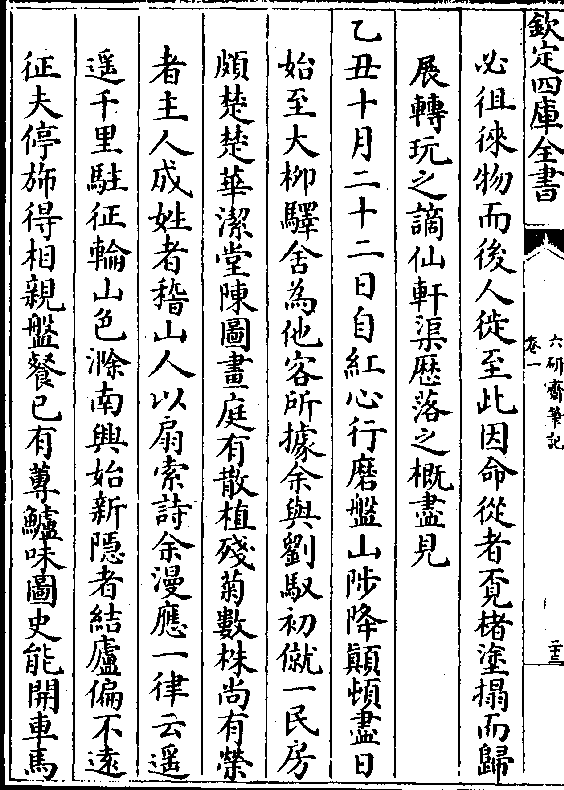 欽定四庫全書
六研齋筆記
卷一
二十三
必徂徠物而後人徙至此因命從者覔楮塗搨而歸
展轉玩之謫仙軒渠歴落之概盡見
乙丑十月二十二日自紅心行磨盤山陟降顛頓盡日
始至大栁驛舎為他客所據余與劉馭初僦一民房
頗楚楚華潔堂陳圖畫庭有散植殘菊數株尚有榮
者主人成姓者稽山人以扇索詩余漫應一律云遥
遥千里駐征輪山色滁南興始新隠者結廬偏不逺
征夫停斾得相親盤餐已有蓴鱸味圖史能開車馬